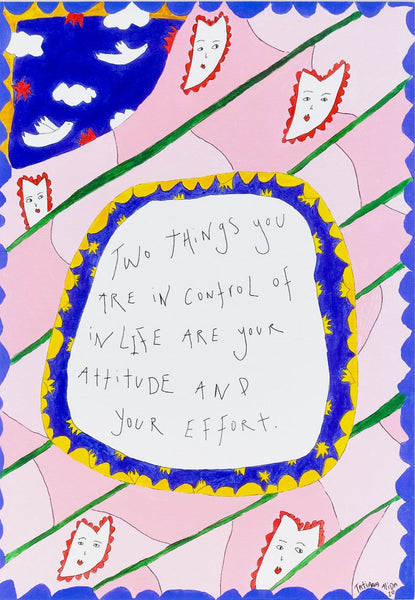 TWO THINGS YOU
ARE IN CONTROL OF
IN LIFE ARE YOUR
ATTITUDE AND
YOUR EFFORT.
TATIANA